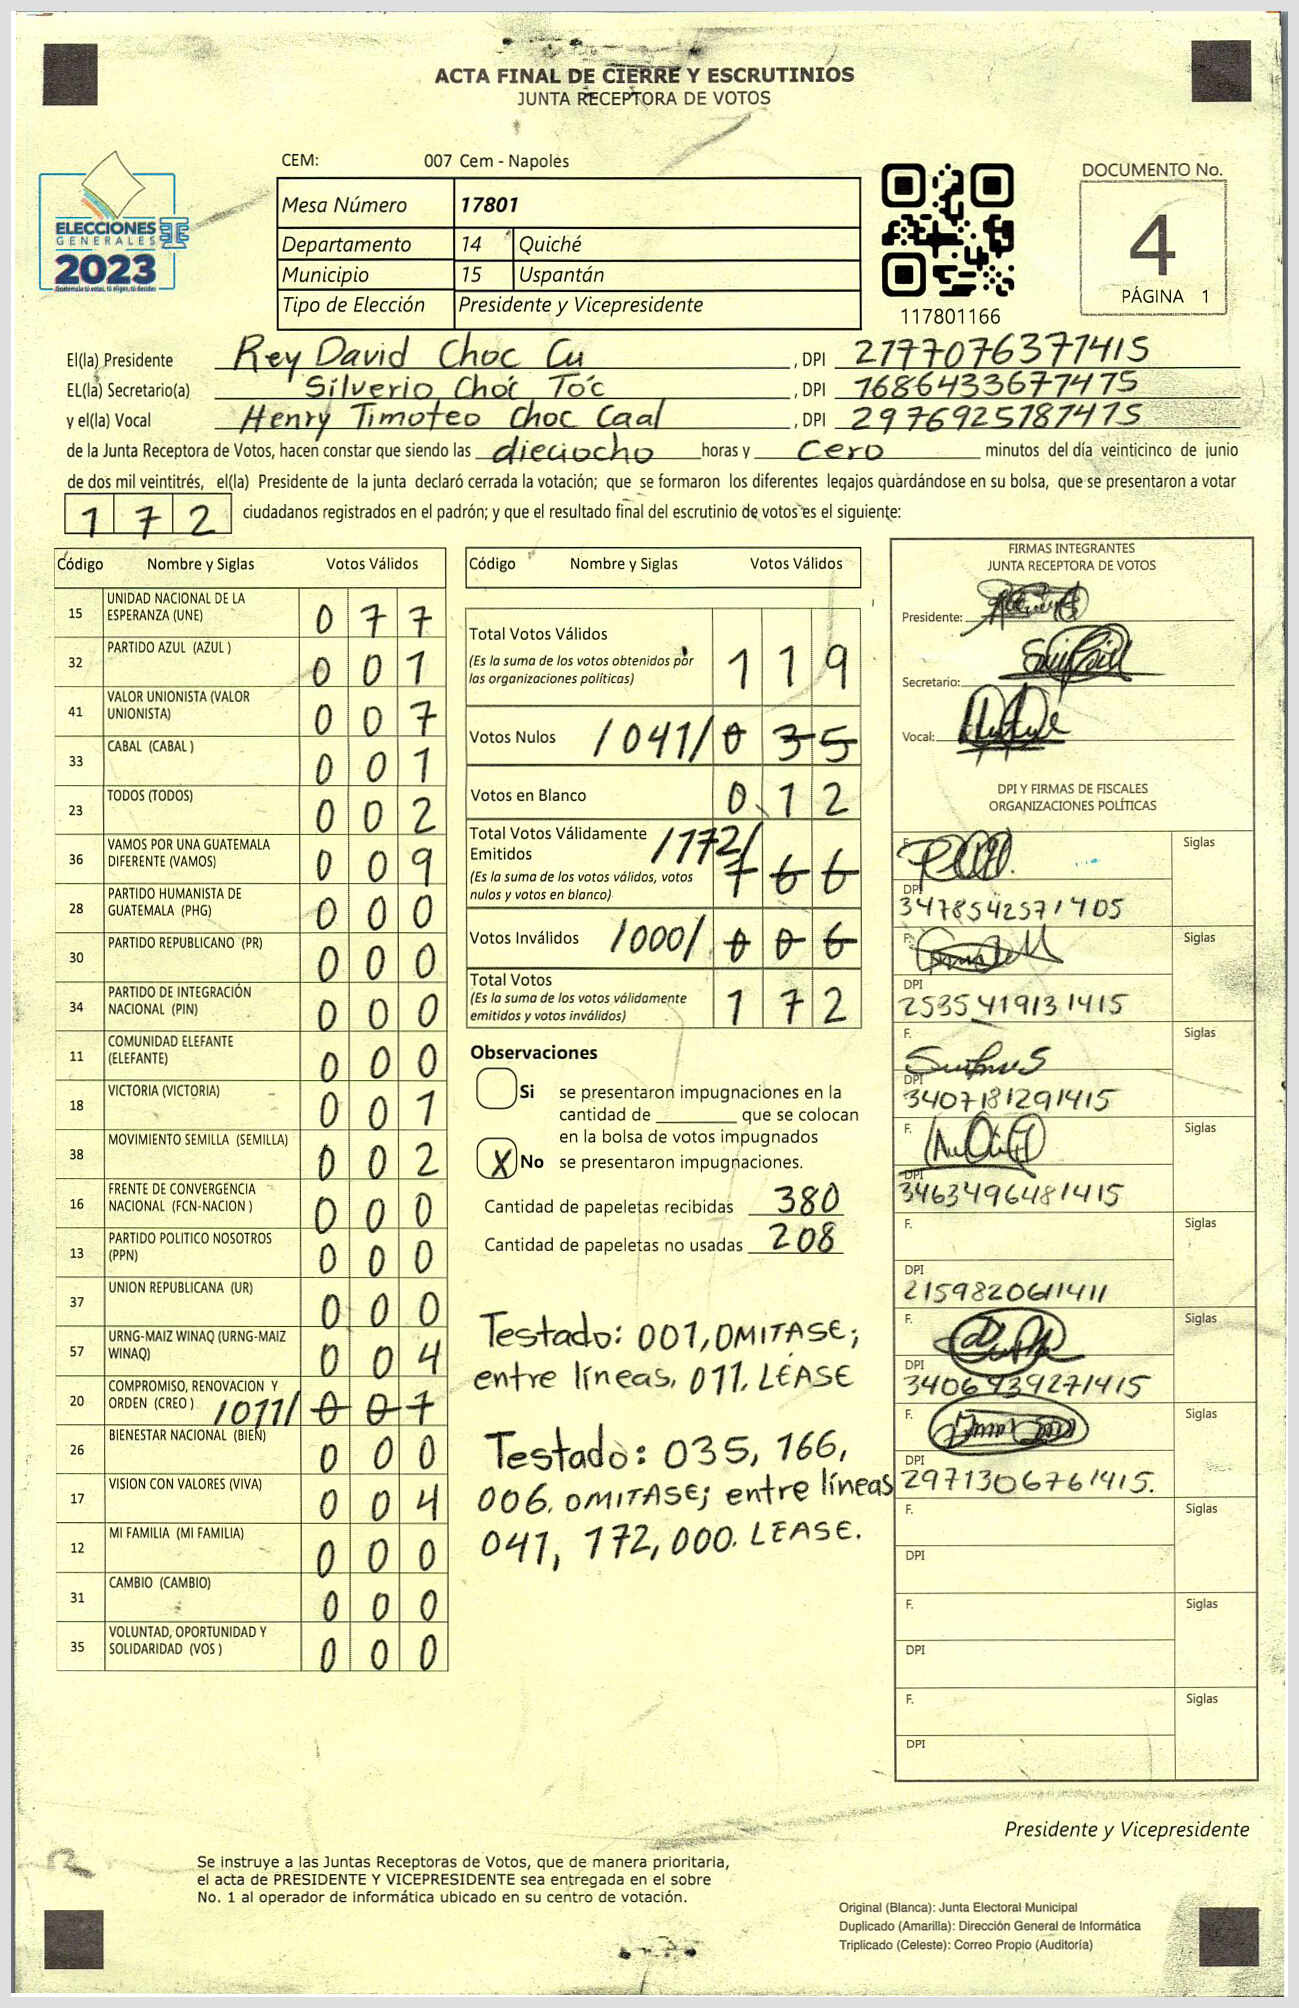 ACTA FINAL DE CIERRE Y ESCRUTINIOS
JUNTA RECEPTORA DE VOTOS
CEM: 007 Cem - Napoles
ELECCIONES
GENERALES
2023
Guatemala tú votas, tú eliges, tú decides
Mesa Número 17801
Departamento 14 Quiché
Municipio 15 Uspantán
Tipo de Elección Presidente y Vicepresidente
117801166
DOCUMENTO No.
4
PÁGINA 1
El(la) Presidente Rey David Choc Cu , DPI 2177076371415
EL(la) Secretario(a) Silverio Choc Toc , DPI 1686433677475
y el(la) Vocal Henry Timoteo Choc Caal , DPI 2976925187415
de la Junta Receptora de Votos, hacen constar que siendo las dieciocho horas y cero minutos del día veinticinco de junio
de dos mil veintitrés, el(la) Presidente de la junta declaró cerrada la votación; que se formaron los diferentes legajos quardándose en su bolsa, que se presentaron a votar
172 ciudadanos registrados en el padrón; y que el resultado final del escrutinio de votos es el siguiente:
Código Nombre y Siglas Votos Válidos
15 UNIDAD NACIONAL DE LA ESPERANZA (UNE) 077
32 PARTIDO AZUL (AZUL ) 001
41 VALOR UNIONISTA (VALOR UNIONISTA) 007
33 CABAL (CABAL ) 001
23 TODOS (TODOS) 002
36 VAMOS POR UNA GUATEMALA DIFERENTE (VAMOS) 009
28 PARTIDO HUMANISTA DE GUATEMALA (PHG) 000
30 PARTIDO REPUBLICANO (PR) 000
34 PARTIDO DE INTEGRACIÓN NACIONAL (PIN) 000
11 COMUNIDAD ELEFANTE (ELEFANTE) 000
18 VICTORIA (VICTORIA) 001
38 MOVIMIENTO SEMILLA (SEMILLA) 002
16 FRENTE DE CONVERGENCIA NACIONAL (FCN-NACION ) 000
13 PARTIDO POLITICO NOSOTROS (PPN) 000
37 UNION REPUBLICANA (UR) 000
57 URNG-MAIZ WINAQ (URNG-MAIZ WINAQ) 004
20 COMPROMISO, RENOVACION Y ORDEN (CREO ) /011/ 007
26 BIENESTAR NACIONAL (BIEN) 000
17 VISION CON VALORES (VIVA) 004
12 MI FAMILIA (MI FAMILIA) 000
31 CAMBIO (CAMBIO) 000
35 VOLUNTAD, OPORTUNIDAD Y SOLIDARIDAD (VOS ) 000
Código Nombre y Siglas Votos Válidos
Total Votos Válidos 119
(Es la suma de los votos obtenidos por
las organizaciones políticas)
Votos Nulos /041/ 035
Votos en Blanco 012
Total Votos Válidamente
Emitidos /172/ 166
(Es la suma de los votos válidos, votos
nulos y votos en blanco)
Votos Inválidos /000/ 006
Total Votos 172
(Es la suma de los votos válidamente
emitidos y votos inválidos)
Observaciones
Si se presentaron impugnaciones en la
cantidad de ________ que se colocan
en la bolsa de votos impugnados
X No se presentaron impugnaciones.
Cantidad de papeletas recibidas 380
Cantidad de papeletas no usadas 208
Testado: 001, OMITASE;
entre líneas, 011. LÉASE
Testado: 035, 166,
006. OMITASE; entre líneas
041, 172, 000. LEASE.
FIRMAS INTEGRANTES
JUNTA RECEPTORA DE VOTOS
Presidente:
Secretario:
Vocal:
DPI Y FIRMAS DE FISCALES
ORGANIZACIONES POLÍTICAS
F. Siglas
DPI
3478542571405
F. Siglas
DPI
2535419131415
F. Siglas
DPI
3407181291415
F. Siglas
DPI
3463496481415
F. Siglas
DPI
2159820611411
F. Siglas
DPI
3406939271415
F. Siglas
DPI
2971306761415.
F. Siglas
DPI
F. Siglas
DPI
F. Siglas
DPI
Presidente y Vicepresidente
Se instruye a las Juntas Receptoras de Votos, que de manera prioritaria,
el acta de PRESIDENTE Y VICEPRESIDENTE sea entregada en el sobre
No. 1 al operador de informática ubicado en su centro de votación.
Original (Blanca): Junta Electoral Municipal
Duplicado (Amarilla): Dirección General de Informática
Triplicado (Celeste): Correo Propio (Auditoría)